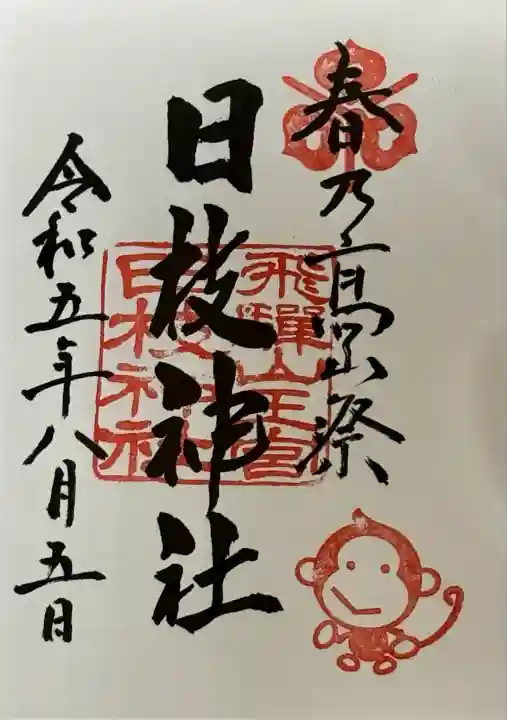 春乃高山祭
日枝神社
飛驒山王宮
日枝神社
令和五年八月五日